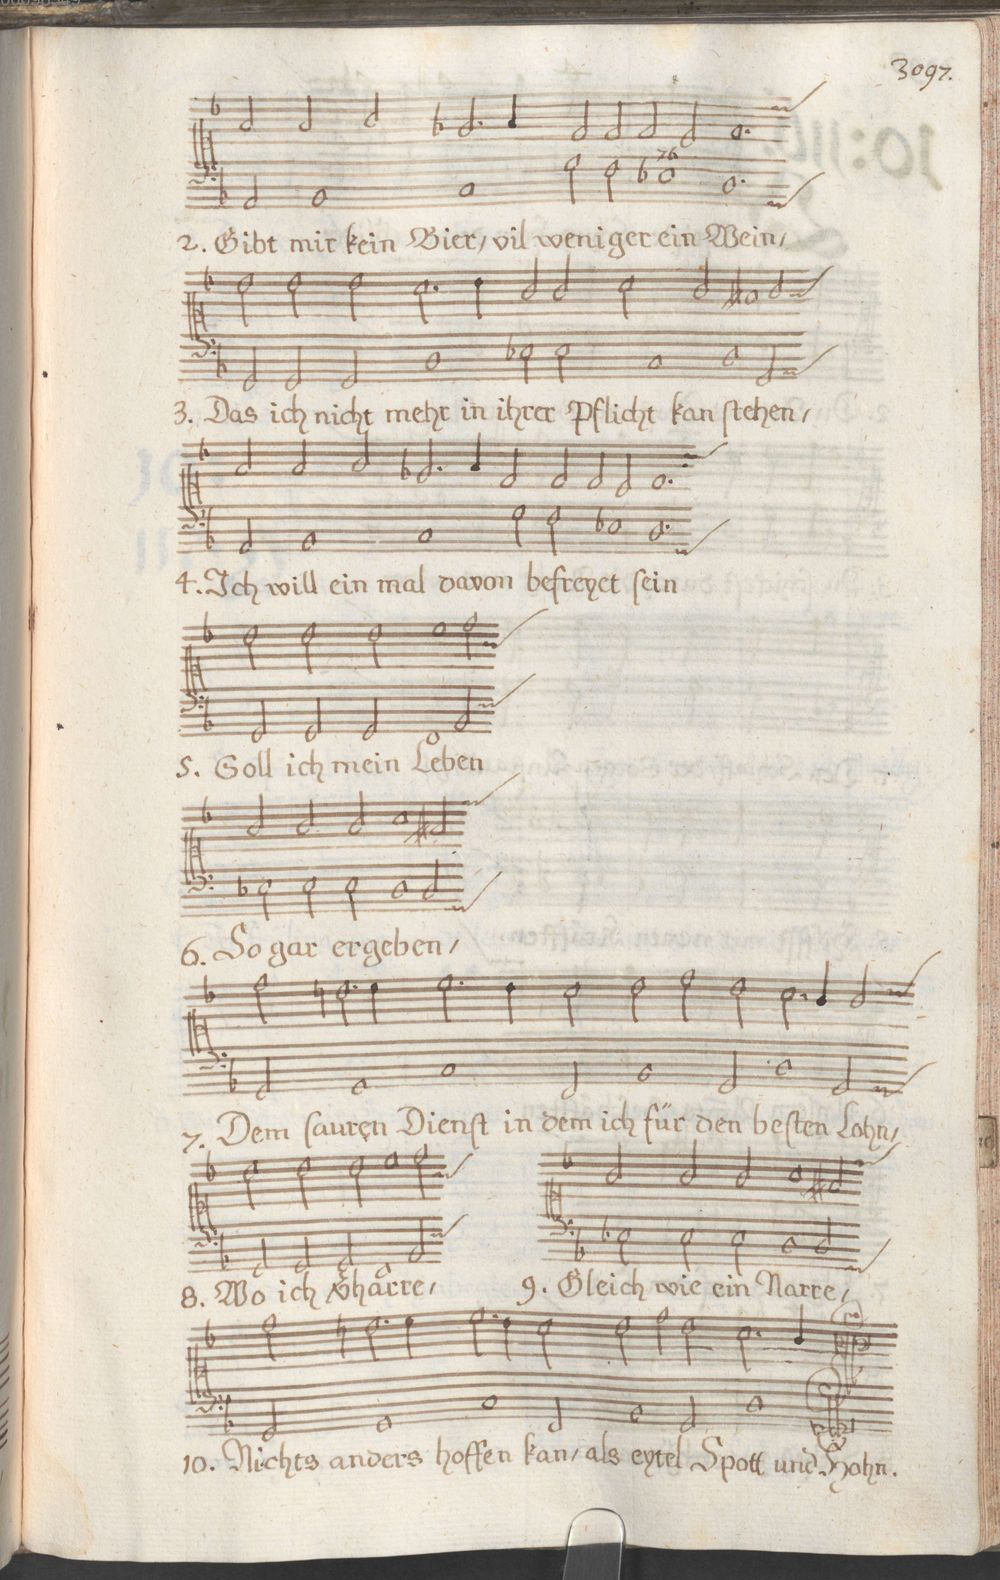 3097.
76
2. Gibt mir kein Bier, vil weniger ein Wein,
3. Das ich nicht mehr in ihrer Pflicht kan stehen,
4. Ich will ein mal davon befreyet sein
5. Soll ich mein Leben
6. So gar ergeben,
7. Dem sauren Dienst in dem ich für den besten Lohn,
8. Wo ich Vharre, 9. Gleich wie ein Narre,
10. Nichts anders hoffen kan, als eytel Spott und Hohn.